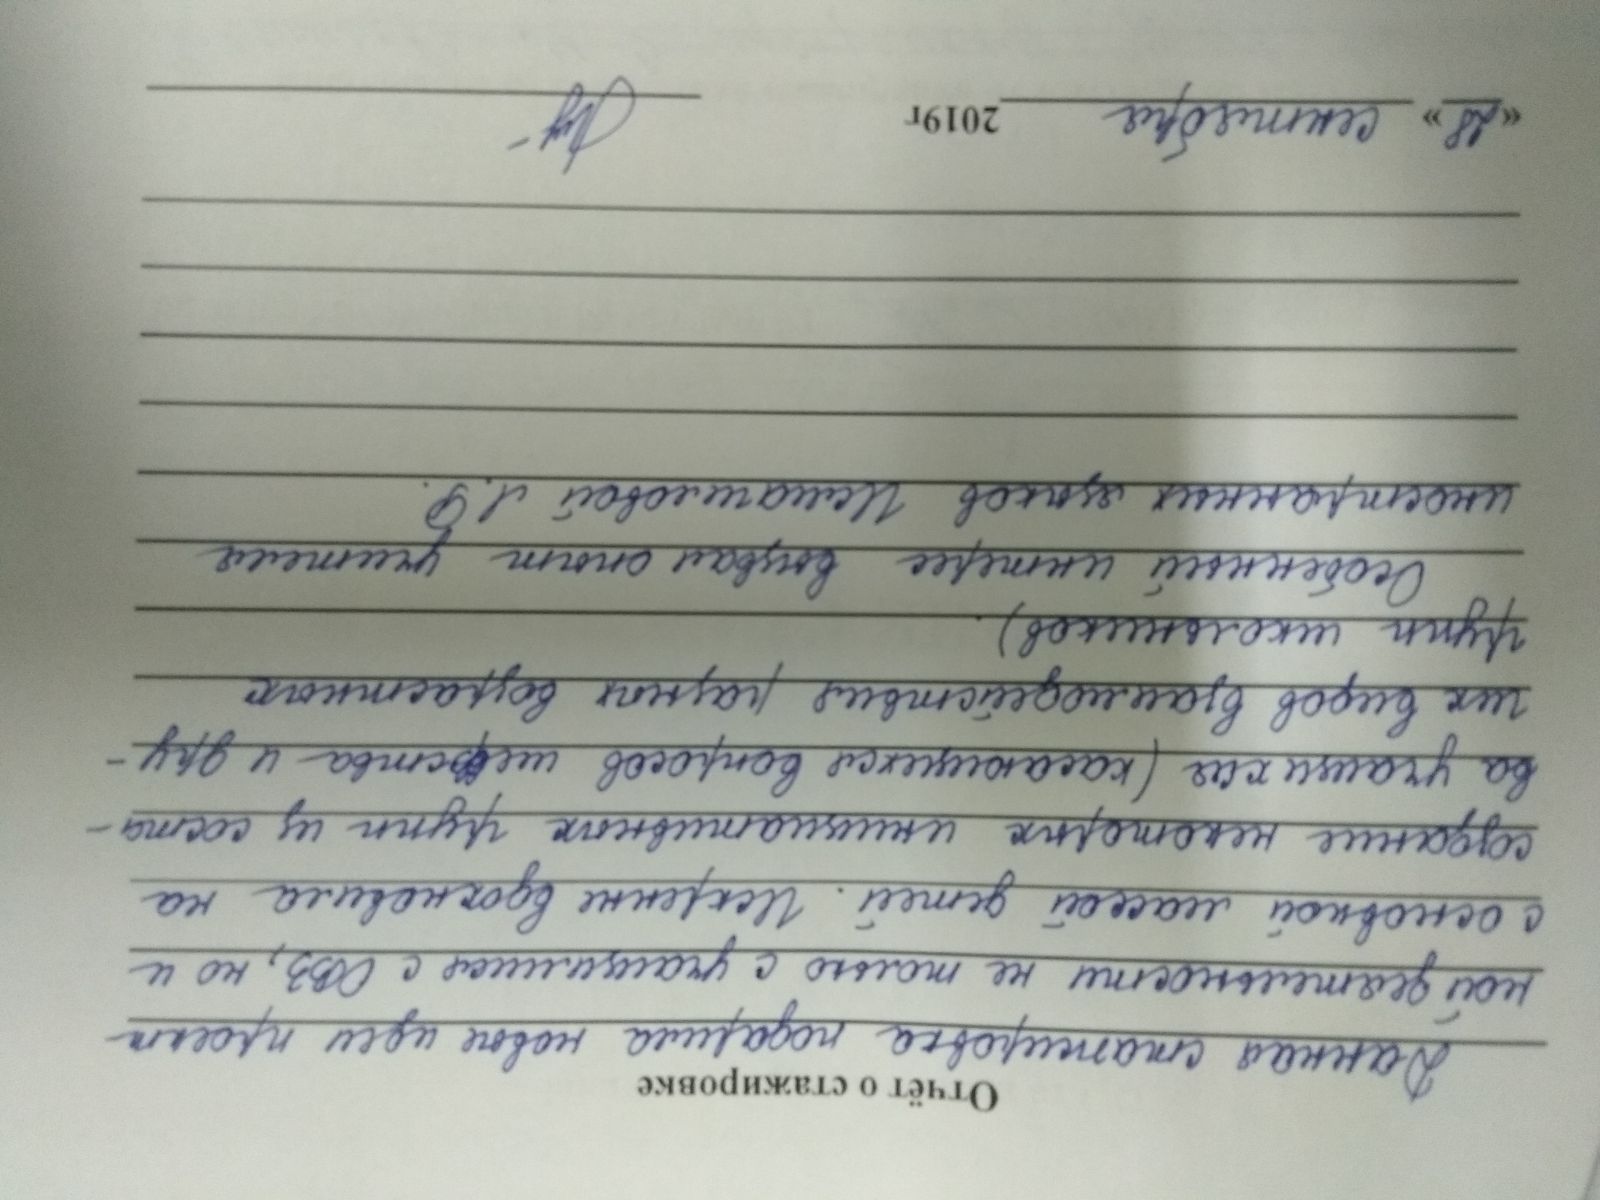 Отчёт о стажировке
Данная стажировка подарила новые идеи проект-
ной деятельности не только с учащимися с ОВЗ, но и
с основной массой детей. Искренне вдохновила на
создание некоторых инициативных групп из соста-
ва учащихся (касающихся вопросов шефства и дру-
гих видов взаимодействия разных возрастных
групп школьников).
Особенный интерес вызвал опыт учителя
иностранных языков Исмаиловой Л.Ф.
«28» сентября 2019г